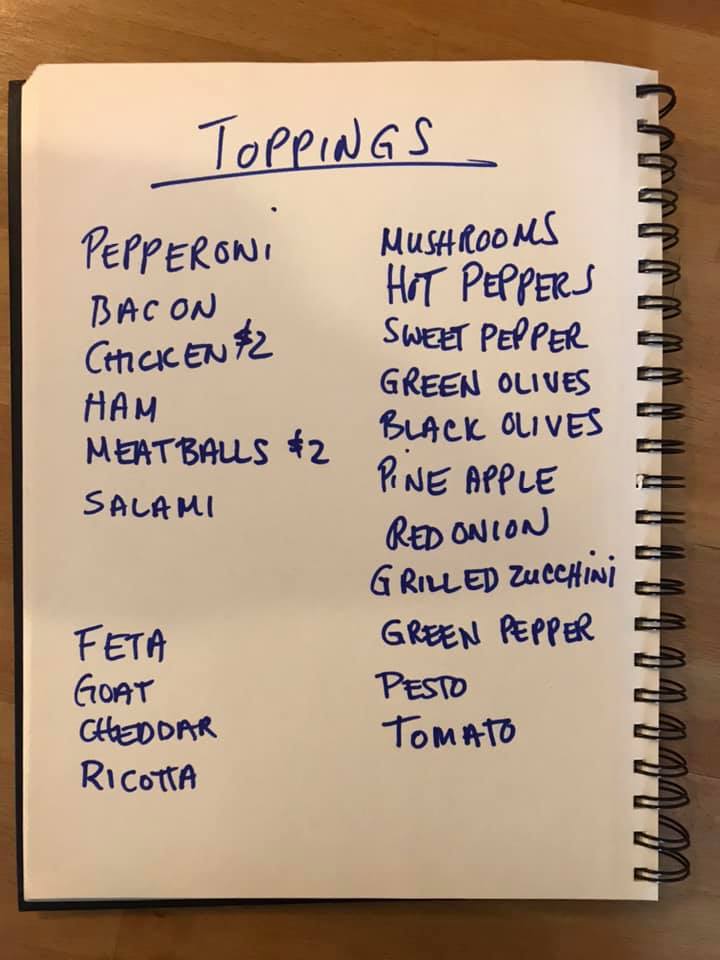 TOPPINGS
PEPPERONI
BACON
CHICKEN $2
HAM
MEATBALLS $2
SALAMI
FETA
GOAT
CHEDDAR
RICOTTA
MUSHROOMS
HOT PEPPERS
SWEET PEPPER
GREEN OLIVES
BLACK OLIVES
PINE APPLE
RED ONION
GRILLED ZUCCHINI
GREEN PEPPER
PESTO
TOMATO